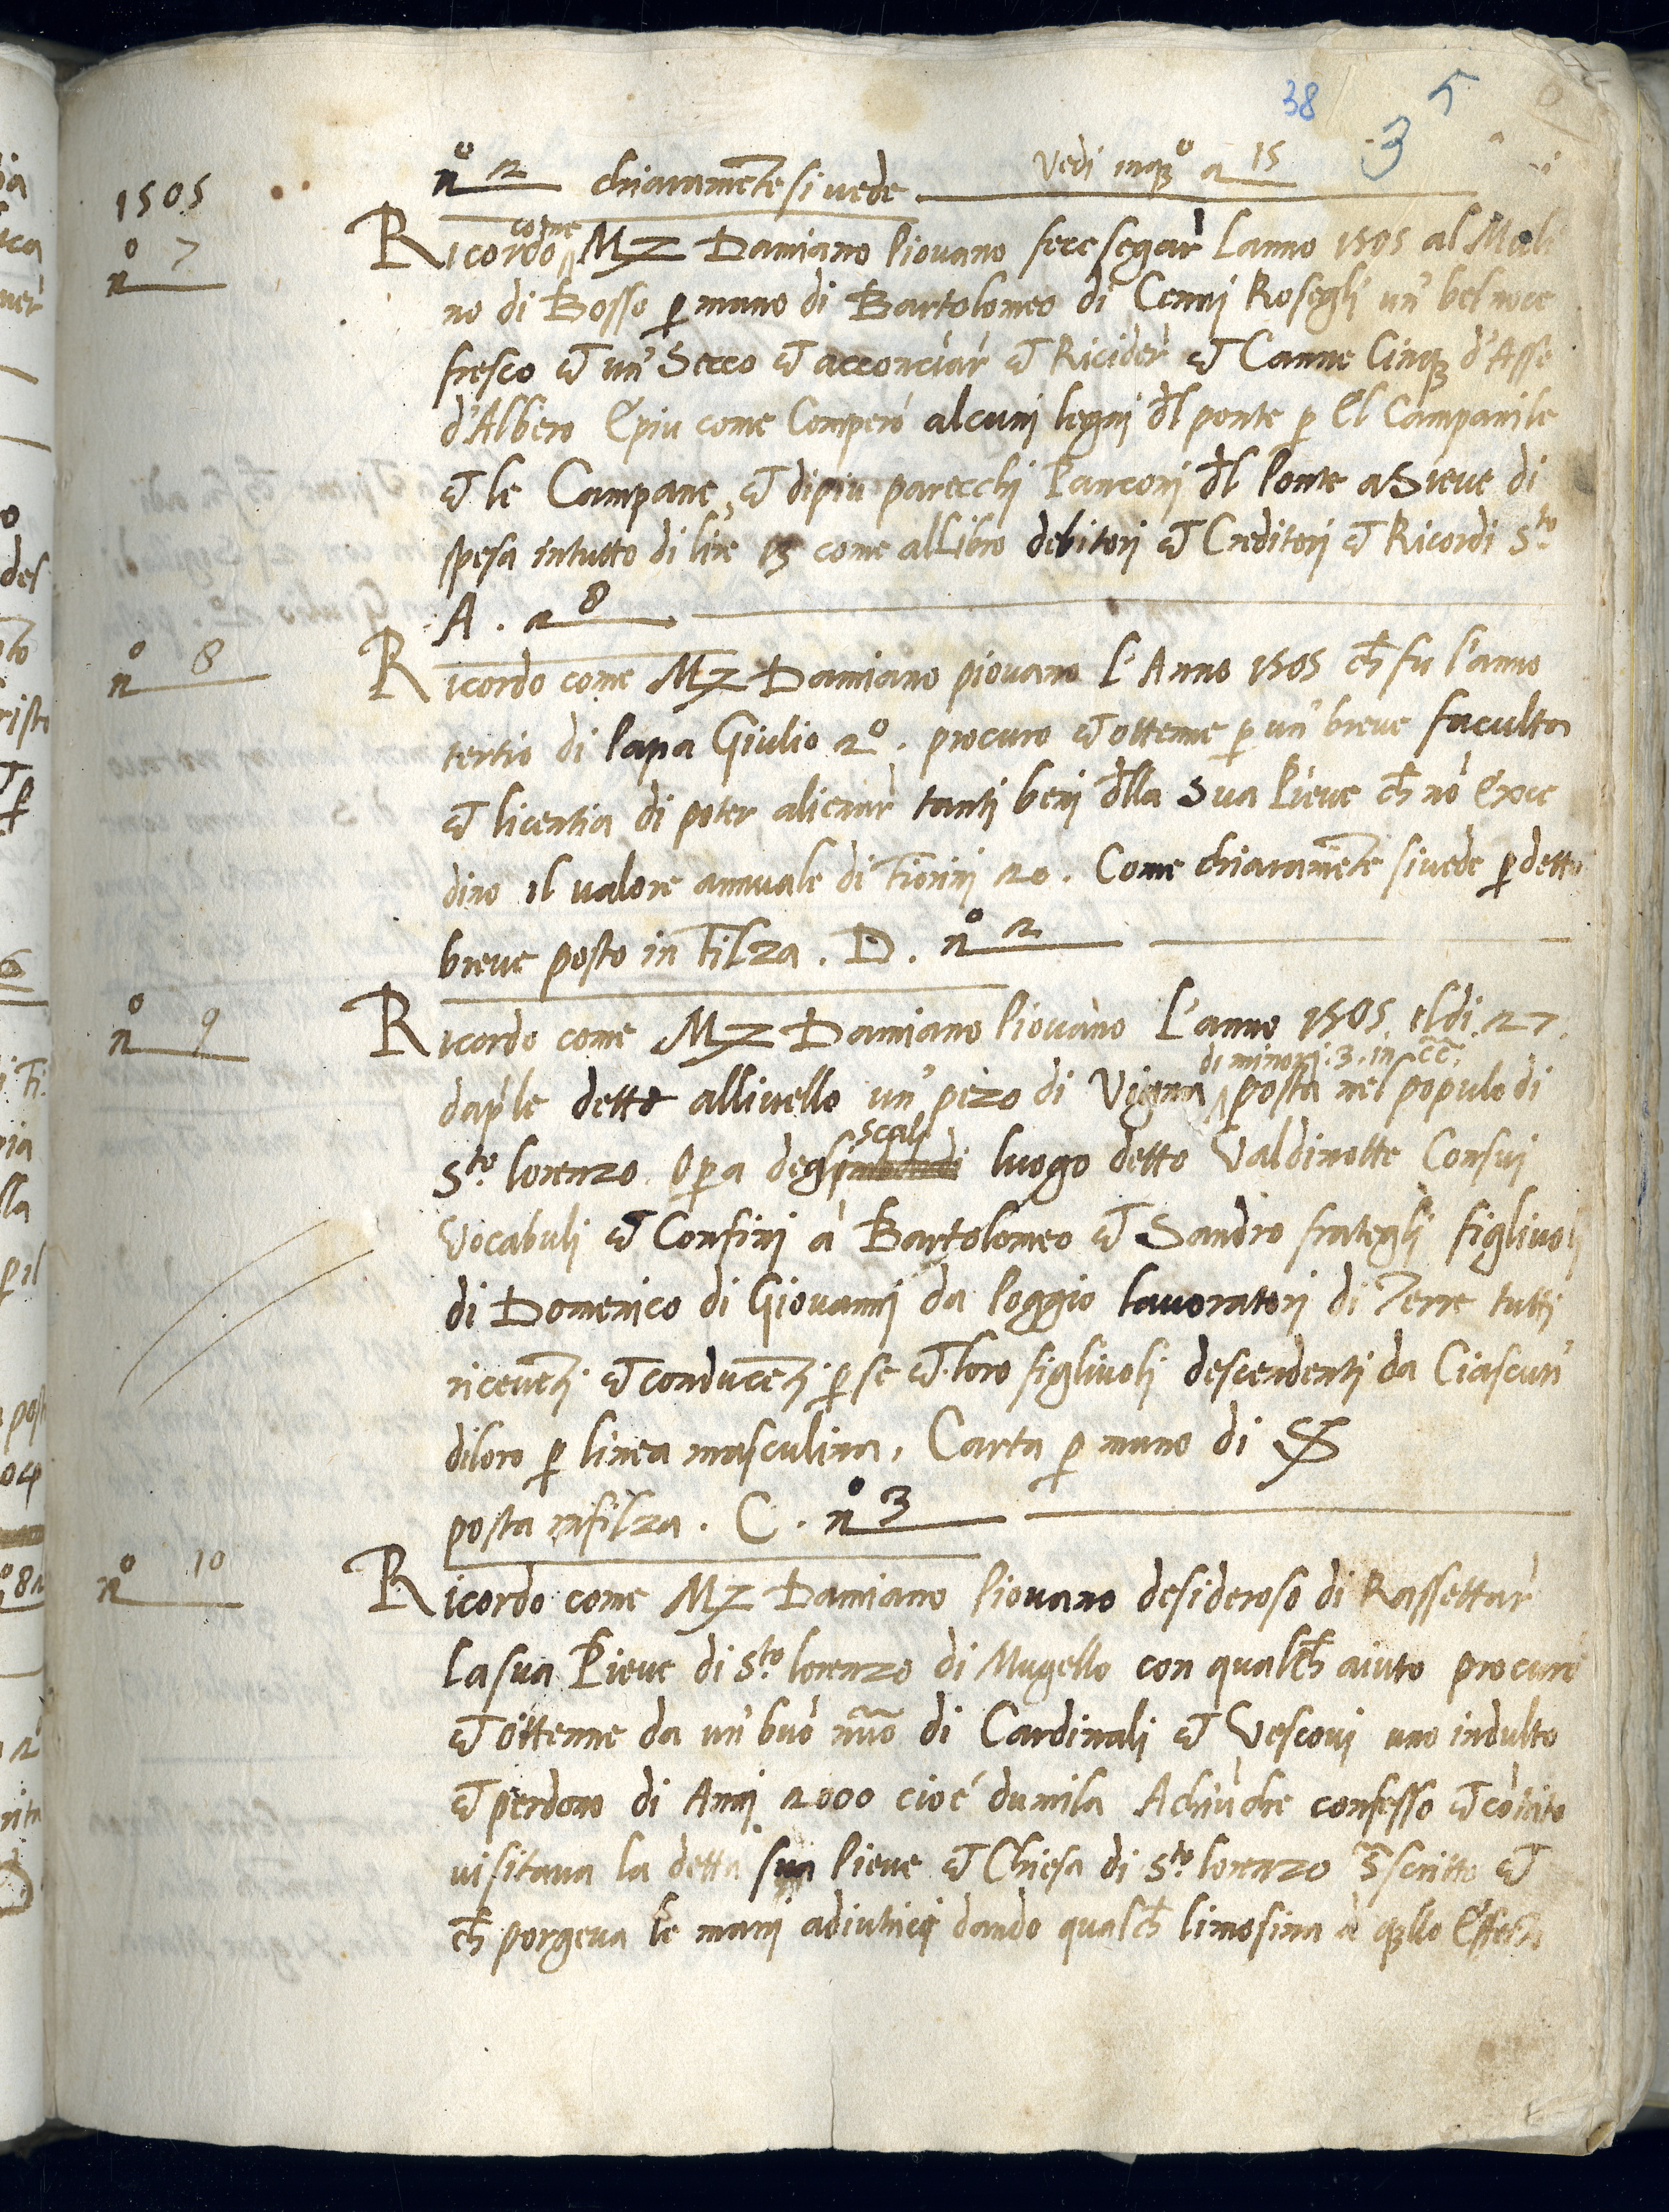 38
3
5
n° 2 chiaramẽte si vede Vedi inq̃° a 15
1505
n° 7
Ricordo come Mz Damiano Piovano fece segar Lanno 1505 al Moli
no di Bosso p mano di Bartolomeo di Cennj Rosegli un' bel noce
fresco et un' Secco et acconciar et Ricider et Canne Cinq̃ d'Asse
d'Albero Epiu come Comperò alcuni legnj d̃l ponte p El Campanile
et le Campane, et dipiu parecchi Panconj d̃l Ponte a Sieve di
spesa intutto di lire 13 come alLibro debitorj et Creditorj et Ricordi S.to
A. a 8
n° 8
Ricordo come Mz Damiano piovano L'Anno 1505 ch̃ fu l'anno
tertio di Papa Giulio 2°. procuro et ottenne p un' breve faculta
et licentia di poter alienar tantj benj d̃lla Sua Pieve ch̃ nõ Exce
dino il valore annuale di Fiorinj 20. Come chiaramẽte si vede p detto
breve posto in Filza. D. n° 2
n° 9
Ricordo come Mz Damiano Piovano L'anno 1505. el di 27.
dap'le dette allivello un' pezo di Vigna di minorj. 3. in c̃c̃. posta nel populo di
S.to lorenzo. Opa degl scalj luogo detto Valdinotte Consuj
Vocabuli et Confinj à Bartolomeo et Sandro frategli figlivolj
di Domenico di Giovannj da Poggio lavoratorj di Terre tuttj
ricevẽtj et conducẽtj p se et loro figlivoli descendentj da Ciascun'
diloro p linea masculina, Carta p mano di S
posta infilza. C. n° 3
n° 10
Ricordo come Mz Damiano Piovano desideroso di Rassettar
La sua Pieve di S.to lorenzo di Mugello con qualch̃ aiuto procurò
et ottenne da un' buõ nũo di Cardinali et Vescovj uno indulto
et perdono di Annj 2000 cioé dumila Achiũche confesso et cõtrito
visitava la detta sua Pieve et Chiesa di S.to lorenzo s̃scritto et
ch̃ porgeva le manj adiutricj dando qualch̃ limosina à q̃llo Effetto